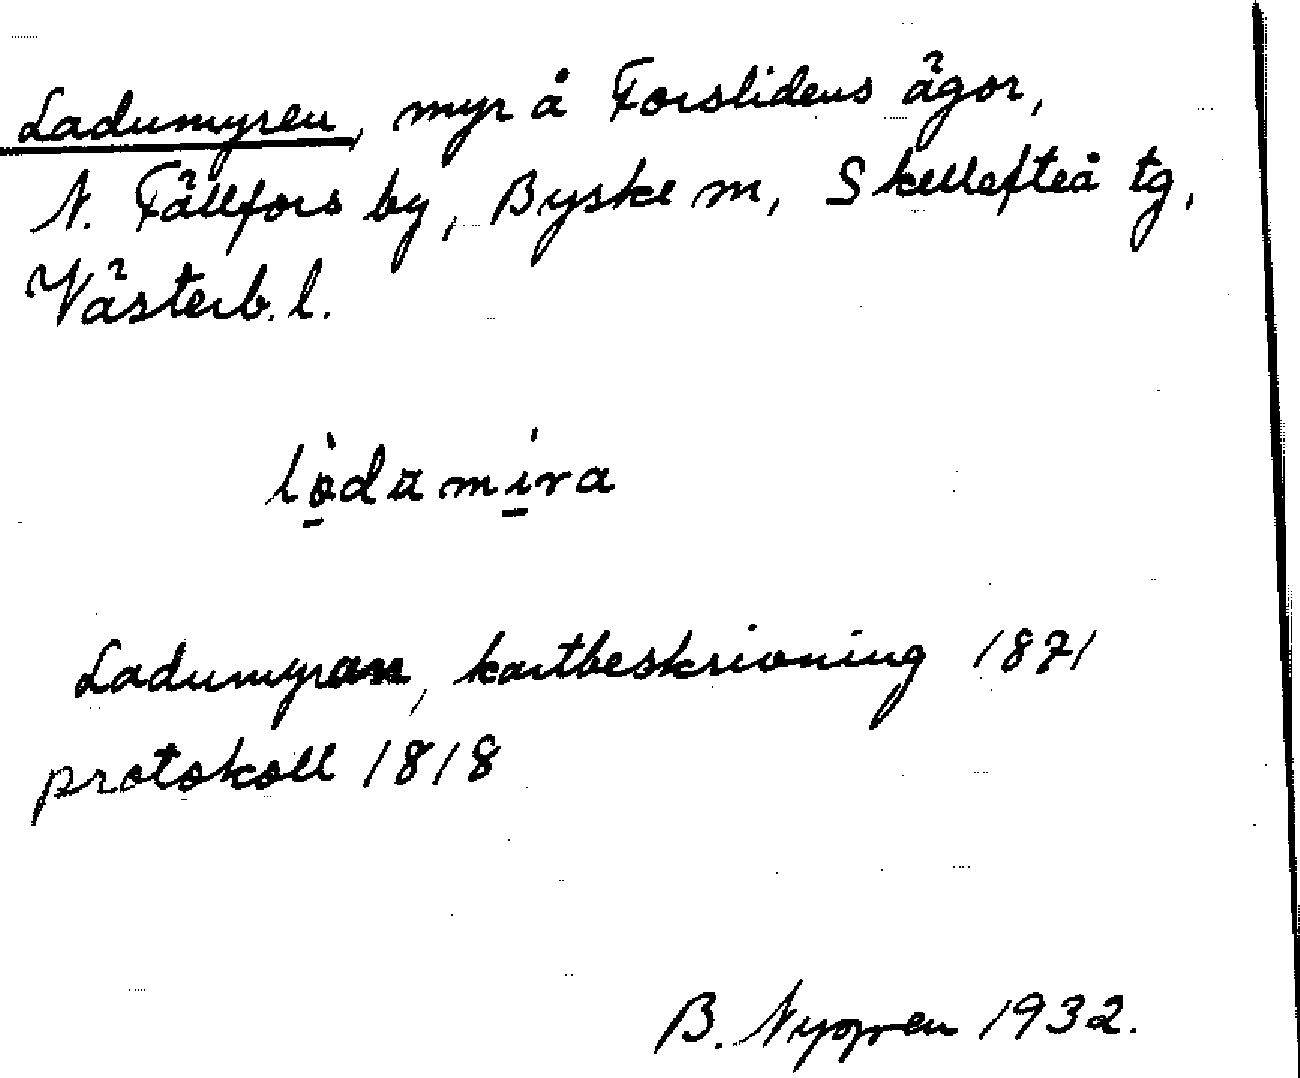 Ladumyren, myr å Forslidens ägor,
N. Fällfors by, Byske sn, Skellefteå tg,
Västerb. l.
lòdamíra
Ladumyran, kartbeskrivning 1871
protokoll 1818
B. Nygren 1932.